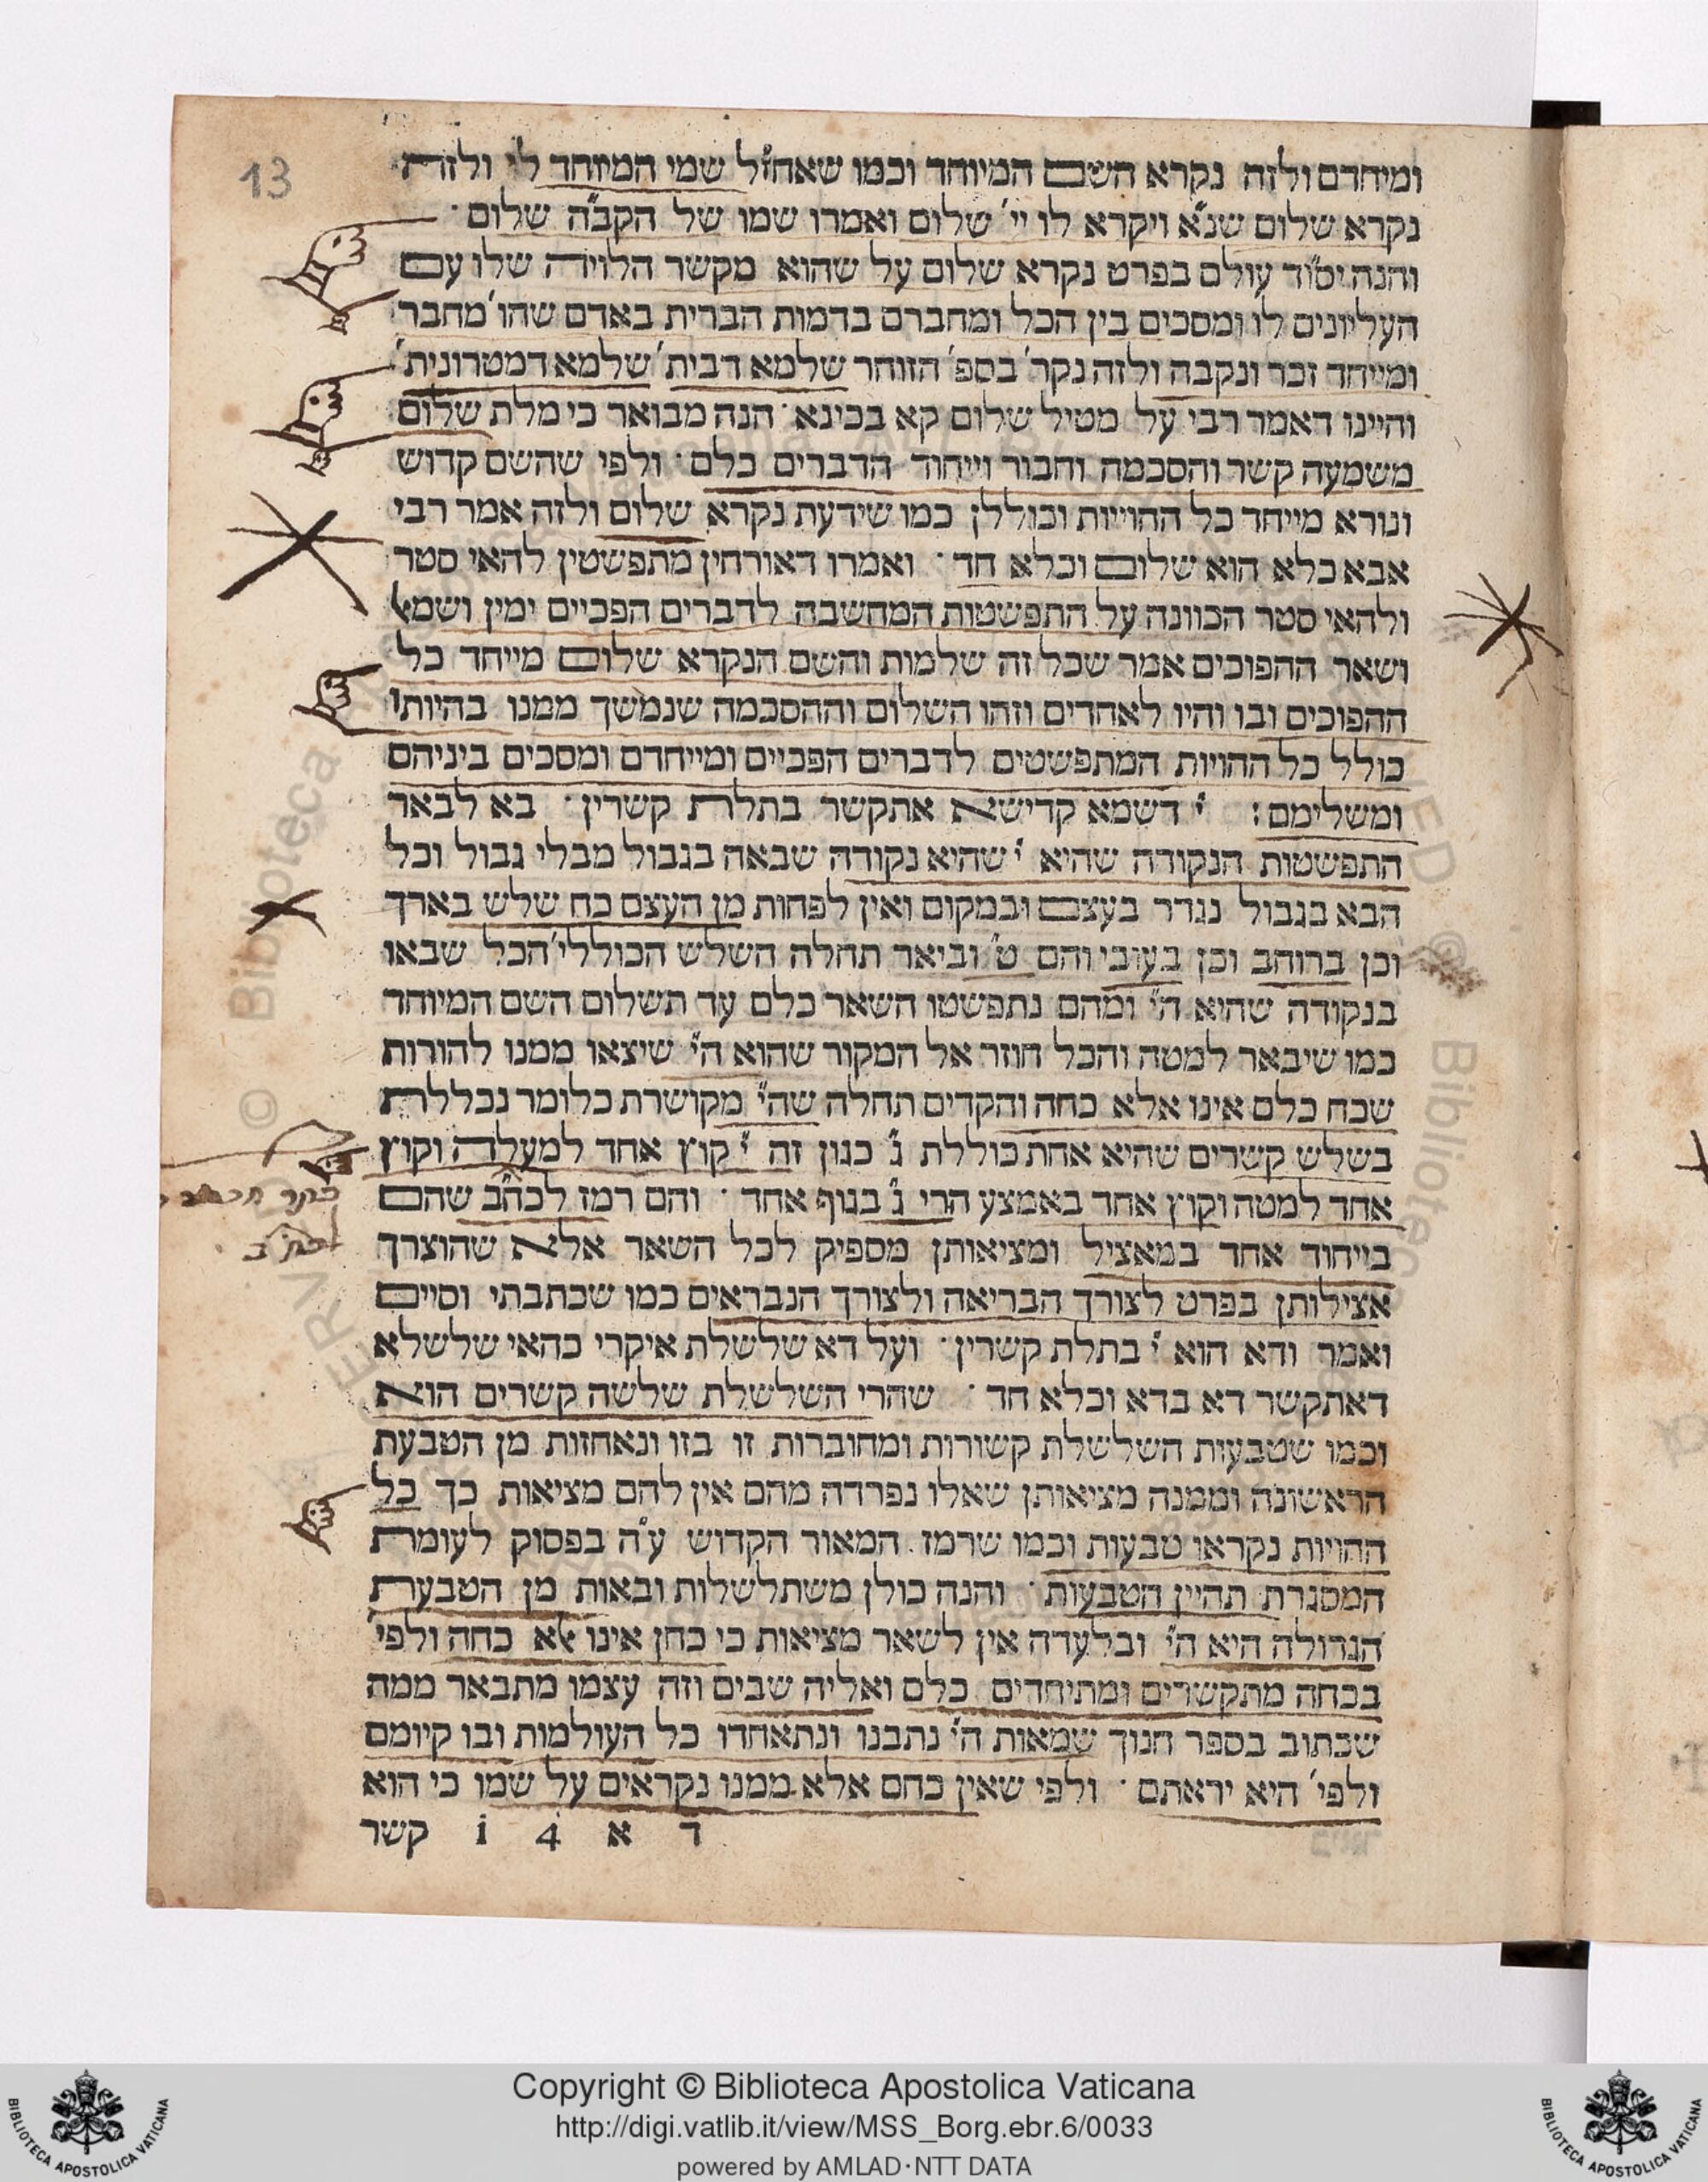 13
ומיחדם ולזה נקרא השם המיוחד וכמו שאחז״ל שמי המיוחד לי ולזה
נקרא שלום שנ״א ויקרא לו יי׳ שלום ואמרו שמו של הקב״ה שלום ·
והנה יסוד עולם בפרט נקרא שלום על שהוא מקשר הלויה שלו עם
העליונים לו ומסכים בין הכל ומחברם בדמות הברית באדם שהו׳ מחבר
ומייחד זכר ונקבה ולזה נקר׳ בספ׳ הזוהר שלמא דבית׳ שלמא דמטרונית׳
והיינו דאמר רבי על מטיל שלום קא בכינא · הנה מבואר כי מלת שלום
משמעה קשר והסכמה וחבור וייחוד הדברים כלם · ולפי שהשם קדוש
ונורא מייחד כל ההוייות וכוללן כמו שידעת נקרא שלום ולזה אמר רבי
אבא כלא הוא שלום וכלא חד · ואמרו דאורחין מתפשטין להאי סטר
ולהאי סטר הכוונה על התפשטות המחשבה לדברים הפכיים ימין ושמאל
ושאר ההפוכים אמר שכל זה שלמות והשם הנקרא שלום מייחד כל
ההפוכים ובו והיו לאחדים וזהו השלום וההסכמה שנמשך ממנו בהיותו
כולל כל ההויות המתפשטים לדברים הפכיים ומייחדם ומסכים ביניהם
ומשלימם : י׳ דשמא קדישא אתקשר בתלת קשרין · בא לבאר
התפשטות הנקודה שהיא י׳ שהיא נקודה שבאה בגבול מבלי גבול וכל
הבא בגבול נגדר בעצם ובמקום ואין לפחות מן העצם כח שלש בארך
וכן ברוחב וכן בעובי והם ט׳ וביאר תחלה השלש הכוללי׳ הכל שבאו
בנקודה שהיא הי׳ ומהם נתפשטו השאר כלם עד תשלום השם המיוחד
כמו שיבאר למטה והכל חוזר אל המקור שהוא הי׳ שיצאו ממנו להורות
שכח כלם אינו אלא כחה והקדים תחלה שהי׳ מקושרת כלומר נכללת
בשלש קשרים שהיא אחת כוללת ג׳ כגון זה י׳ קוץ אחד למעלה וקוץ
אחד למטה וקוץ אחד באמצע הרי ג׳ בגוף אחד · והם רמז לכח״ב שהם
בייחוד אחד במאציל ומציאותן מספיק לכל השאר אלא שהוצרך
אצילותן בפרט לצורך הבריאה ולצורך הנבראים כמו שכתבתי וסיים
ואמר ודא הוא י׳ בתלת קשרין · ועל דא שלשלת איקרי כהאי שלשלא
דאתקשר דא בדא וכלא חד · שהרי השלשלת שלשה קשרים הוא
וכמו שטבעות השלשלת קשורות ומחוברות זו בזו ונאחזות מן הטבעת
הראשונה וממנה מציאותן שאלו נפרדה מהם אין להם מציאות כך כל
ההויות נקראו טבעות וכמו שרמז המאור הקדוש ע״ה בפסוק לעומת
המסגרת תהיין הטבעות · והנה כולן משתלשלות ובאות מן הטבעת
הגדולה היא הי׳ ובלעדה אין לשאר מציאות כי כחן אינו אלא כחה ולפי׳
בכחה מתקשרים ומתיחדים כלם ואליה שבים וזה עצמו מתבאר ממה
שכתוב בספר חנוך שמאות הי׳ נתבנו ונתאחדו כל העולמות ובו קיומם
ולפי׳ היא יראתם · ולפי שאין כחם אלא ממנו נקראים על שמו כי הוא
ד א 4 i קשר
Copyright © Biblioteca Apostolica Vaticana
http://digi.vatlib.it/view/MSS_Borg.ebr.6/0033
powered by AMLAD·NTT DATA
BIBLIOTECA APOSTOLICA VATICANA
BIBLIOTECA APOSTOLICA VATICANA